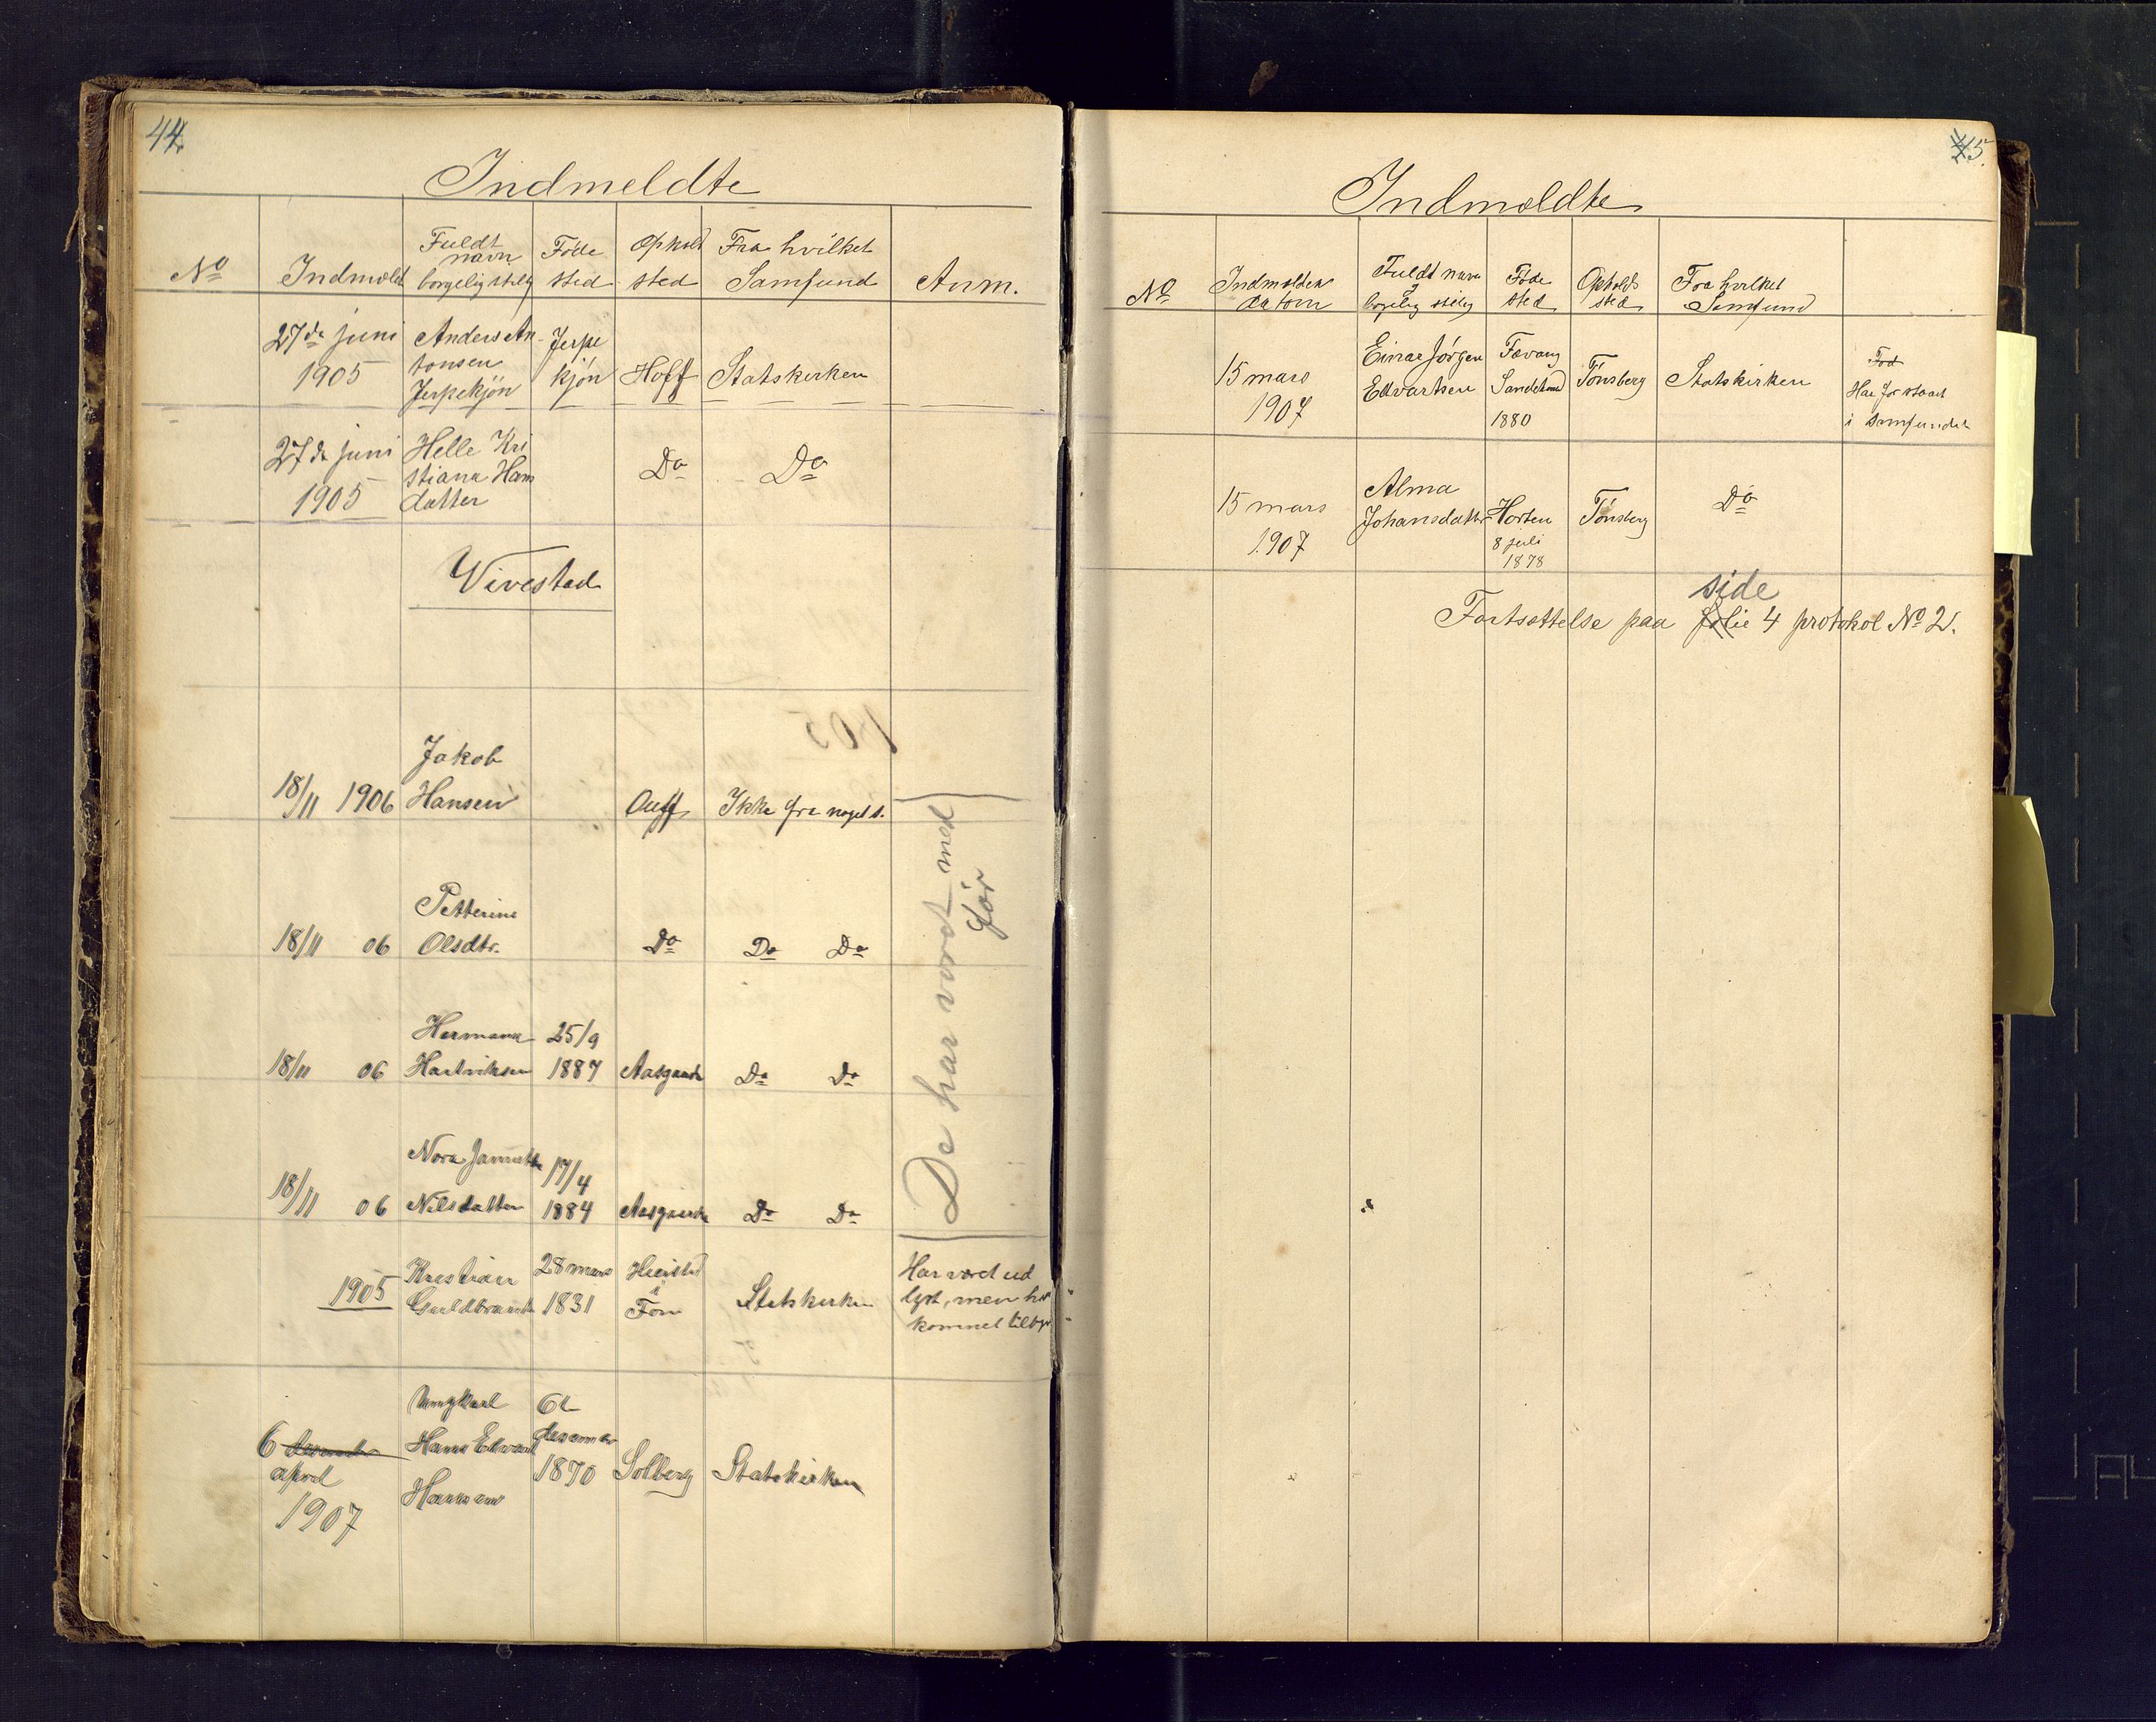 44.
Indmeldte
No Indmeldt Fuldt navn borgelig stilg Føde sted Ophold sted Fra hvilket Samfund Anm.
27de juni 1905 Anders An-
tonsen
Jerpekjøn Jerpe
kjøn Hoff Statskirken
27de juni 1905 Helle Kri
stiana Hans
datter Do Do
Vivestad
18/11 1906 Jakob
Hansen Ikke fra noget s.
18/11 06 Petterine
Olsdtr. Do Do Do
18/11 06 Hermann
Hartviksen 25/9
1887 Aasgaarde Do Do
18/11 06 Nora
Nilsdatter 17/4
1884 Aasgaarde Do Do
De har vært med
før
1905 Kristian
28 mars
1831
i
Statskirken
Har vært ud
lyst, men har
kommet tilbge
6 april
1907
Ungkarl
Hans Edvard
Hansen
6te
desember
1870 Solberg Statskirken
45.
Indmeldte
No Indmeldes datom Fuldt navn og borgelig stilg Føde sted Opholds sted Fra hvilket Samfund
15 mars
1907 Einar Jørgen
Edvartsen Fævang
Sandeherred
1880 Tønsberg Statskirken Fød
Har før staaet
i samfundet
15 mars
1907 Alma
Johansdatter Horten
8 juli
1878 Tønsberg Do
side
Fortsettelse paa folie 4 protokol No 2.